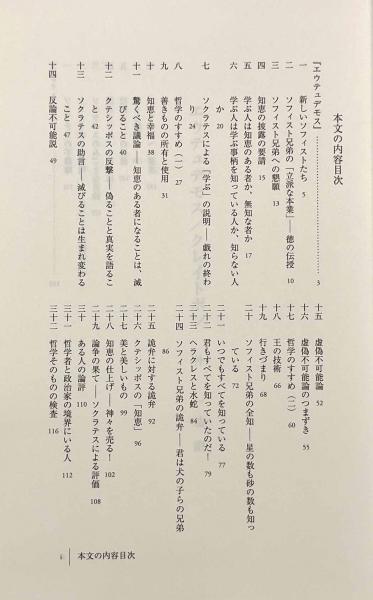 本文の内容目次
『エウテュデモス』 3
一 新しいソフィストたち 5
二 ソフィスト兄弟の「立派な本業」——徳の伝授 10
三 ソフィスト兄弟への懇願 13
四 知恵の披露の要請 15
五 学ぶ人は知恵のある者か、無知な者か 17
六 学ぶ人は学ぶ事柄を知っている人か、知らない人
か 20
七 ソクラテスによる「学ぶ」の説明——戯れの終わ
り 24
八 哲学のすすめ(一) 27
九 善きものの所有と使用 31
十 知恵と幸福 38
十一 驚くべき議論——知恵のある者になることは、滅
びること 40
十二 クテシッポスの反撃——偽ることと真実を語るこ
と 42
十三 ソクラテスの助言——滅びることは生まれ変わる
こと 47
十四 反論不可能説 49
十五 虚偽不可能論 52
十六 虚偽不可能論のつまずき 55
十七 哲学のすすめ(二) 60
十八 王の技術 66
十九 行きづまり 68
二十 ソフィスト兄弟の全知——星の数も砂の数も知っ
ている 72
二十一 いつでもすべてを知っている 77
二十二 君もすべてを知っていたのだ! 79
二十三 ヘラクレスと水蛇 84
二十四 ソフィスト兄弟の詭弁——君は犬の子らの兄弟
86
二十五 詭弁に対する詭弁 92
二十六 クテシッポスの「知恵」 96
二十七 美と美しいもの 99
二十八 知恵の仕上げ——神々を売る! 102
二十九 論争の果て——ソクラテスによる評価 108
三十 ある人の論評 110
三十一 哲学者と政治家の境界にいる人 112
三十二 哲学そのものの検査 116
本文の内容目次